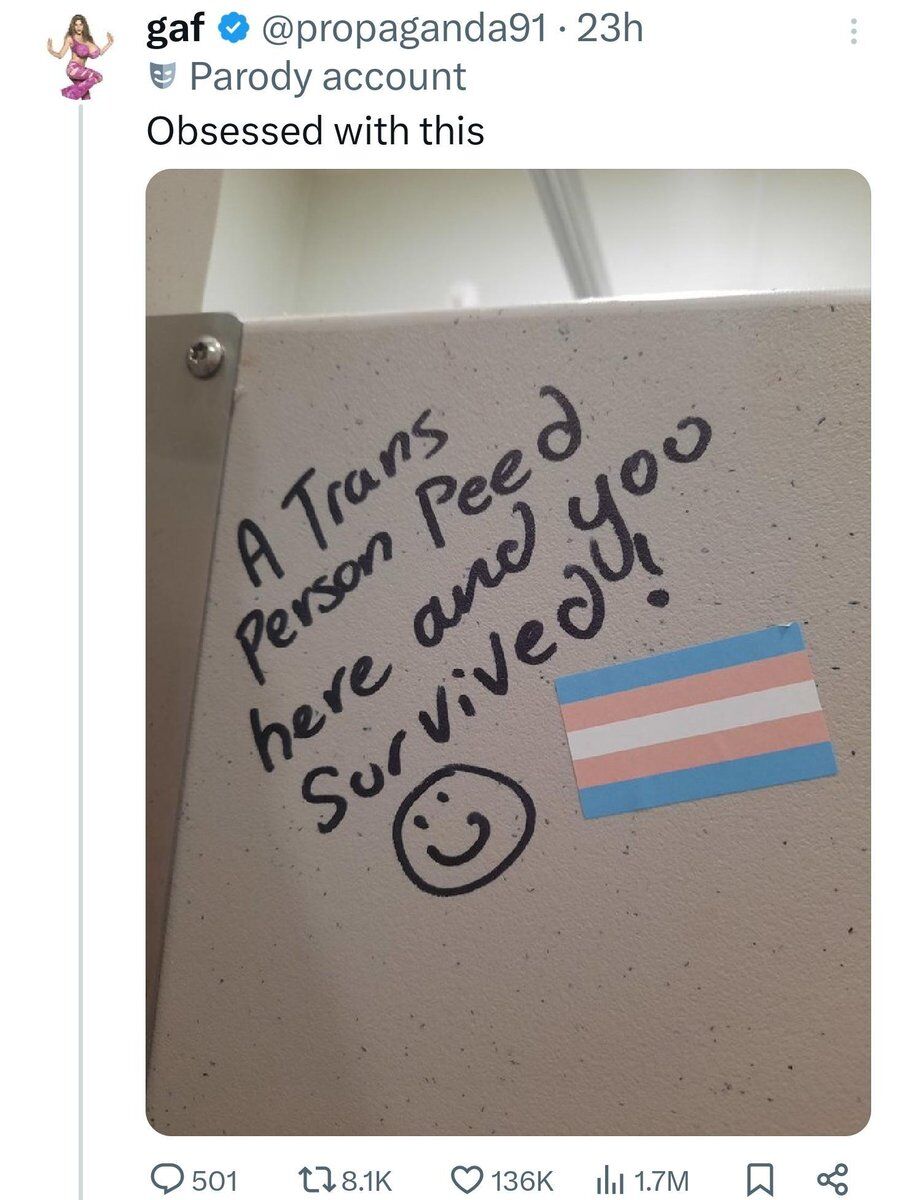 gaf @propaganda91 · 23h
Parody account
Obsessed with this
A Trans
Person Peed
here and you
Survived!
501 8.1K 136K 1.7M